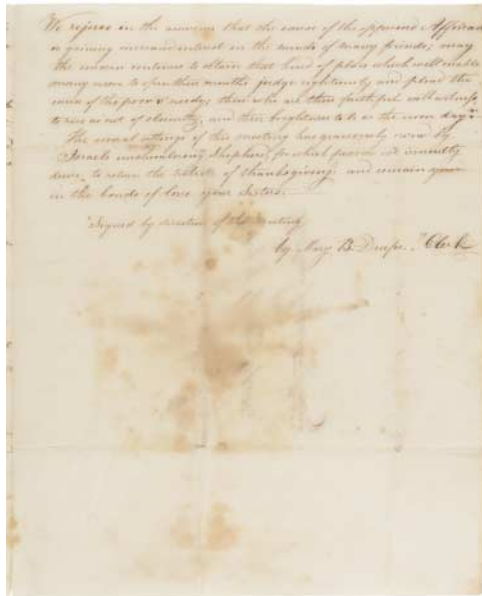 We rejoice in the assurance that the cause of the oppressed Affrican
is gaining increased interest in the minds of many friends; may
the concern continue to obtain that kind of place which will enable
many more to open their mouths judge righteously and plead the
cause of the poor & needy; these who are thus faithful will witness
to rise as out of obscurity, and their brightness to be as the noon day"
The usual of this meeting has graciously by
Israels unslumbering Shepherd, for which favour we
desire to return the tribute of thanksgiving and remain
in the bonds of love your Sisters.
Signed by direction of the meeting
by Mary B. Clerk